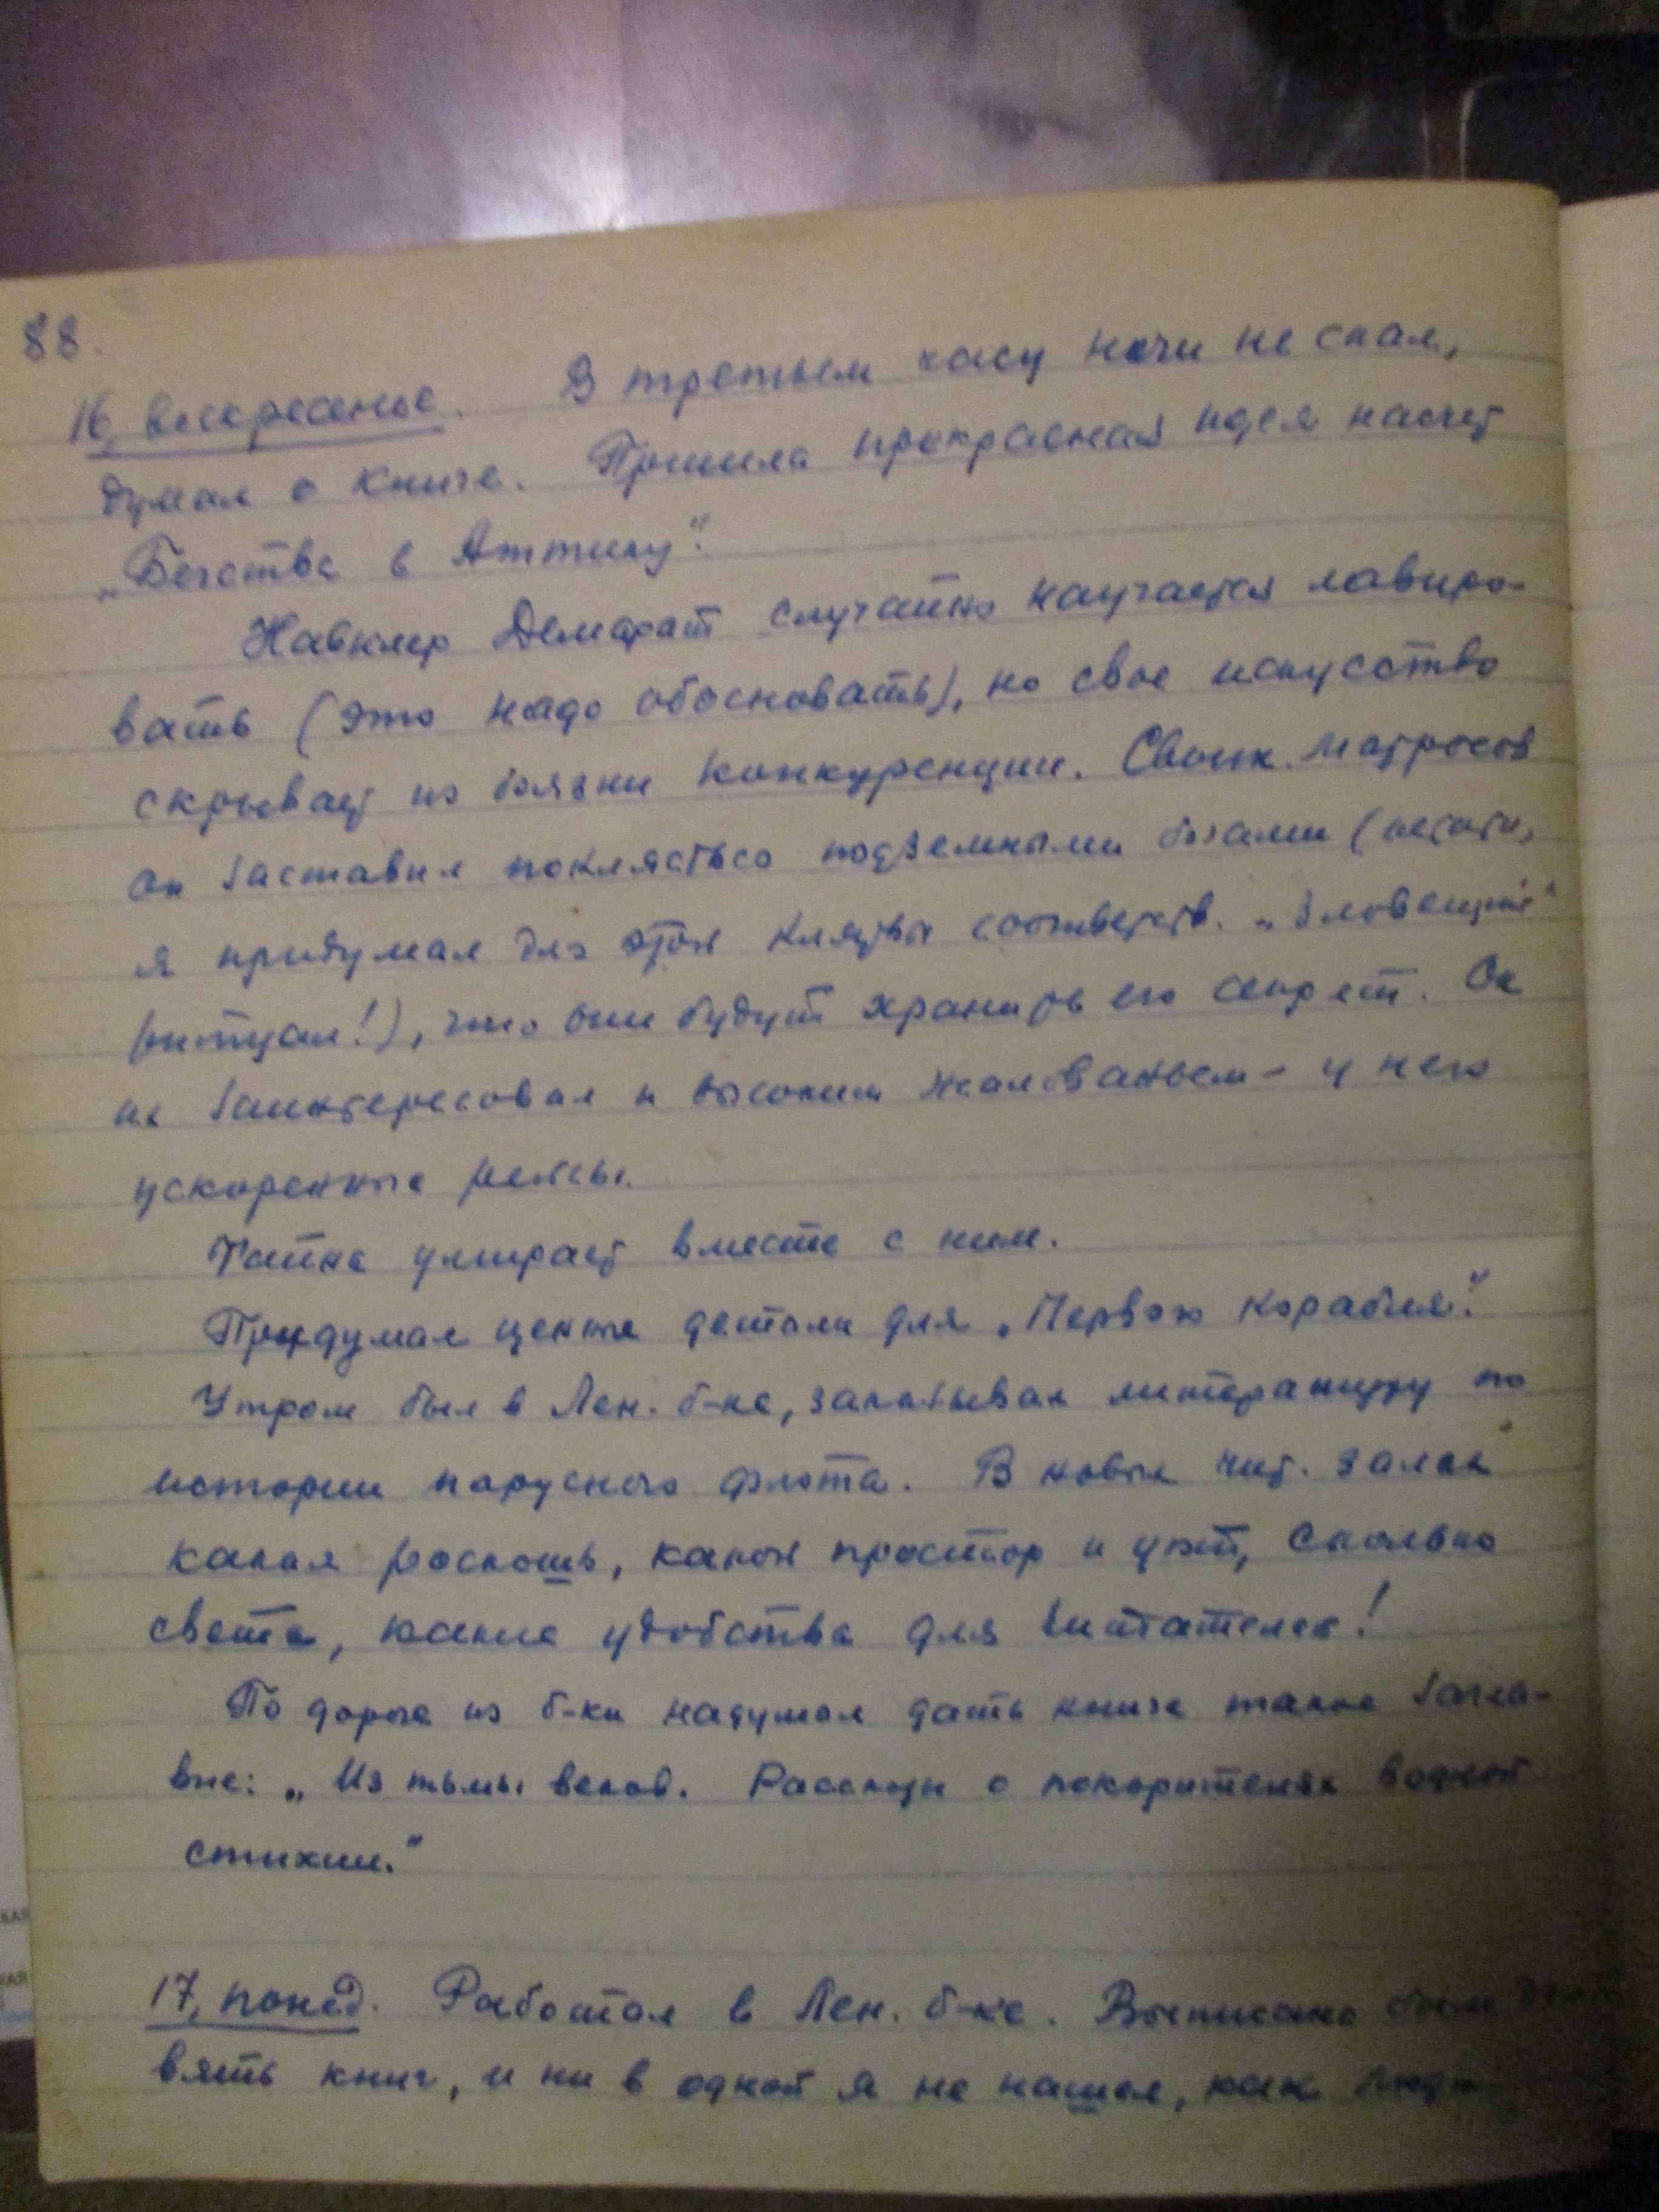 88.
16, воскресенье. В третьем часу ночи не спал,
думал о книге. Пришла прекрасная идея насчет
„Бегства в Аттику".
Навклер Демарат случайно научается лавиро-
вать (это надо обосновать), но свое искусство
скрывает из боязни конкуренции. Своих матросов
он заставил поклясться подземными богами (кстати,
я придумал для этой клятвы соответств. „зловещий"
ритуал!), что они будут хранить его секрет. Он
их заинтересовал и высоким жалованьем – у него
ускоренные рейсы.
Тайна умирает вместе с ним.
Придумал ценные детали для „Первого корабля".
Утром был в Лен. б-ке, заказывал литературу по
истории парусного флота. В новых чит. залах
какая роскошь, какой простор и уют, сколько
света, какие удобства для читателей!
По дороге из б-ки надумал дать книге такое загла-
вие: „Из тьмы веков. Рассказы о покорителях водной
стихии."
17, понед. Работал в Лен. б-ке. Выписано было де-
вять книг, и ни в одной я не нашел, как люди
КАЯ
НАЯ